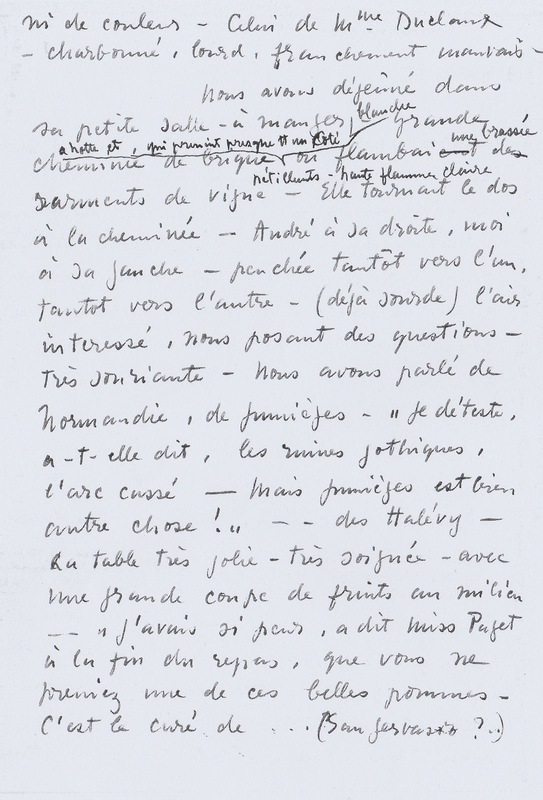 ni de couleur – Celui de Mme Duclaux
– charbonné, lourd, franchement mauvais –
Nous avons déjeuné dans
sa petite salle – à manger, blanche grande
à hotte et, qui prenait presque tt un côté
une brassée
cheminée de brique où flambait des
pétillents – haute flamme claire
sarments de vigne – Elle tournait le dos
à la cheminée – André à sa droite, moi
à sa gauche – penchée tantôt vers l'un,
tantôt vers l'autre – (déjà sourde) l'air
interessé, nous posant des questions –
très souriante – Nous avons parlé de
Normandie, de Jumièges – " Je déteste,
a-t-elle dit, les ruines gothiques,
l'arc cassé — Mais Jumièges est bien
autre chose ! " – – des Halévy –
La table très jolie – très soignée – avec
une grande coupe de fruits au milieu
– – " J'avais si peur, a dit Miss Paget
à la fin du repas, que vous ne
preniez une de ces belles pommes –
C'est le curé de . . . (San Gervasio ?..)